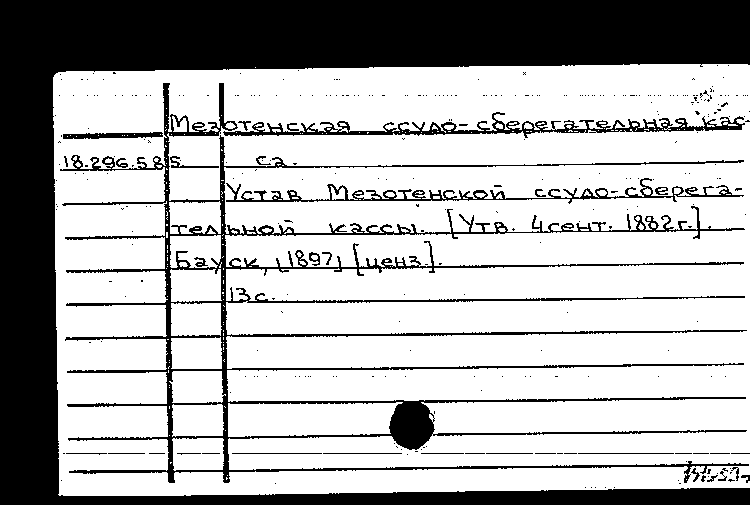 Мезотенская ссудо-сберегательная кас-
18.296.585 са.
Устав Мезотенской ссудо-сберега-
тельной кассы. [Утв. 4 сент. 1882 г.].
Бауск, [1897] [ценз].
13 с.